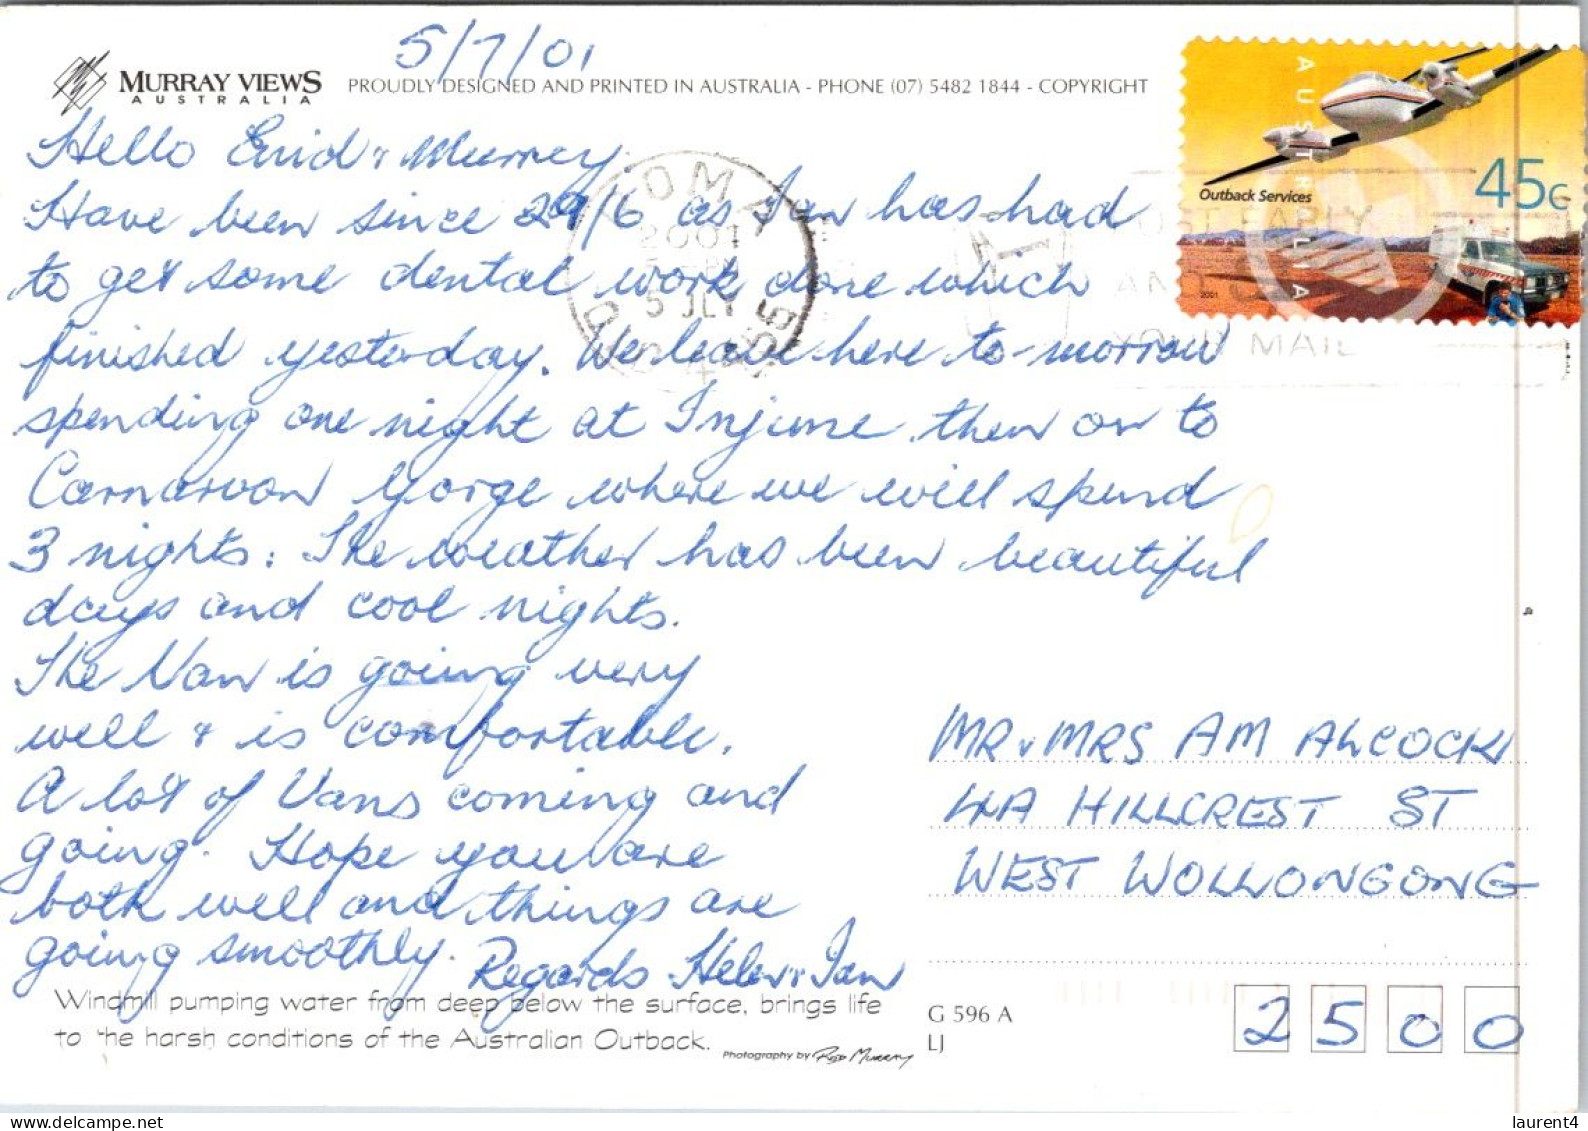 5/7/01
MURRAY VIEWS
AUSTRALIA
PROUDLY DESIGNED AND PRINTED IN AUSTRALIA - PHONE (07) 5482 1844 - COPYRIGHT
Hello Enid & Murray.
Have been since 29/6 as Ian has had
to get some dental work done which
finished yesterday. We leave here to-morrow
spending one night at Injune then on to
Carnarvon Gorge where we will spend
3 nights. The weather has been beautiful
days and cool nights.
The Van is going very
well & is comfortable.
A lot of Vans coming and
going. Hope you are
both well and things are
going smoothly.
Regards Helen & Ian
Windmill pumping water from deep below the surface, brings life
to the harsh conditions of the Australian Outback.
Photography by Rod Murray
G 596 A
LJ
AUSTRALIA
45c
Outback Services
2001
ROMA
2001
5 JLY
QLD 4455
POST EARLY
AND
YOUR MAIL
MR & MRS AM ALCOCK
4A HILLCREST ST
WEST WOLLONGONG
2500
delcampe.net
laurent4